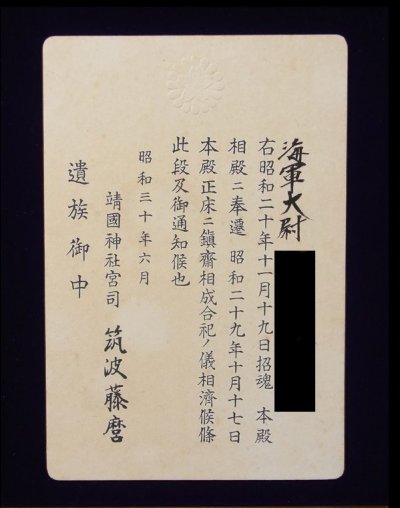 海軍大尉
右昭和二十年十一月十九日招魂　本殿
相殿ニ奉遷　昭和二十九年十月十七日
本殿正床ニ鎮齋相成合祀ノ儀相濟候條
此段及御通知候也
昭和三十年六月
靖國神社宮司　筑波藤麿
遺族御中